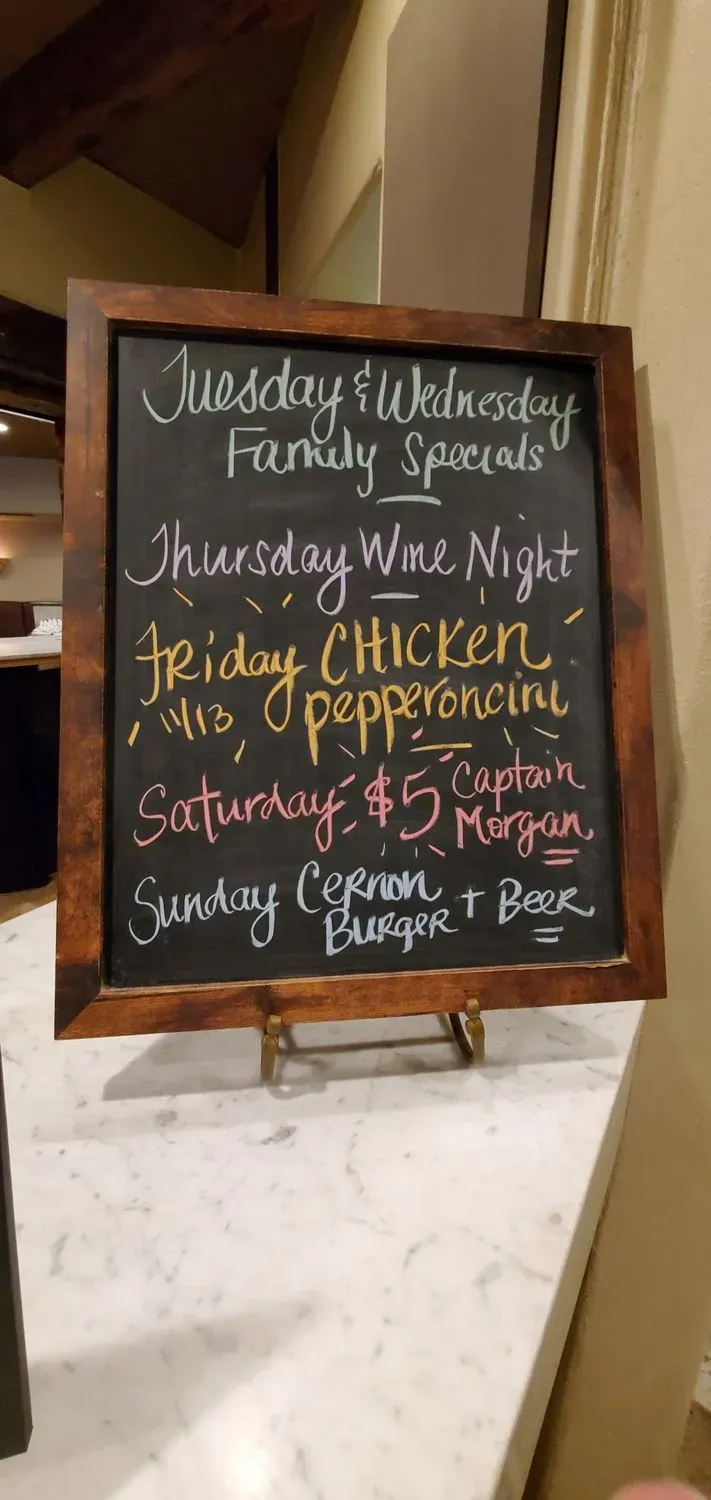 Tuesday & Wednesday
Family Specials
Thursday Wine Night
Friday CHICKEN
11/13 pepperoncini
Saturday $5 Captain
Morgan
Sunday Cernon + Beer
Burger